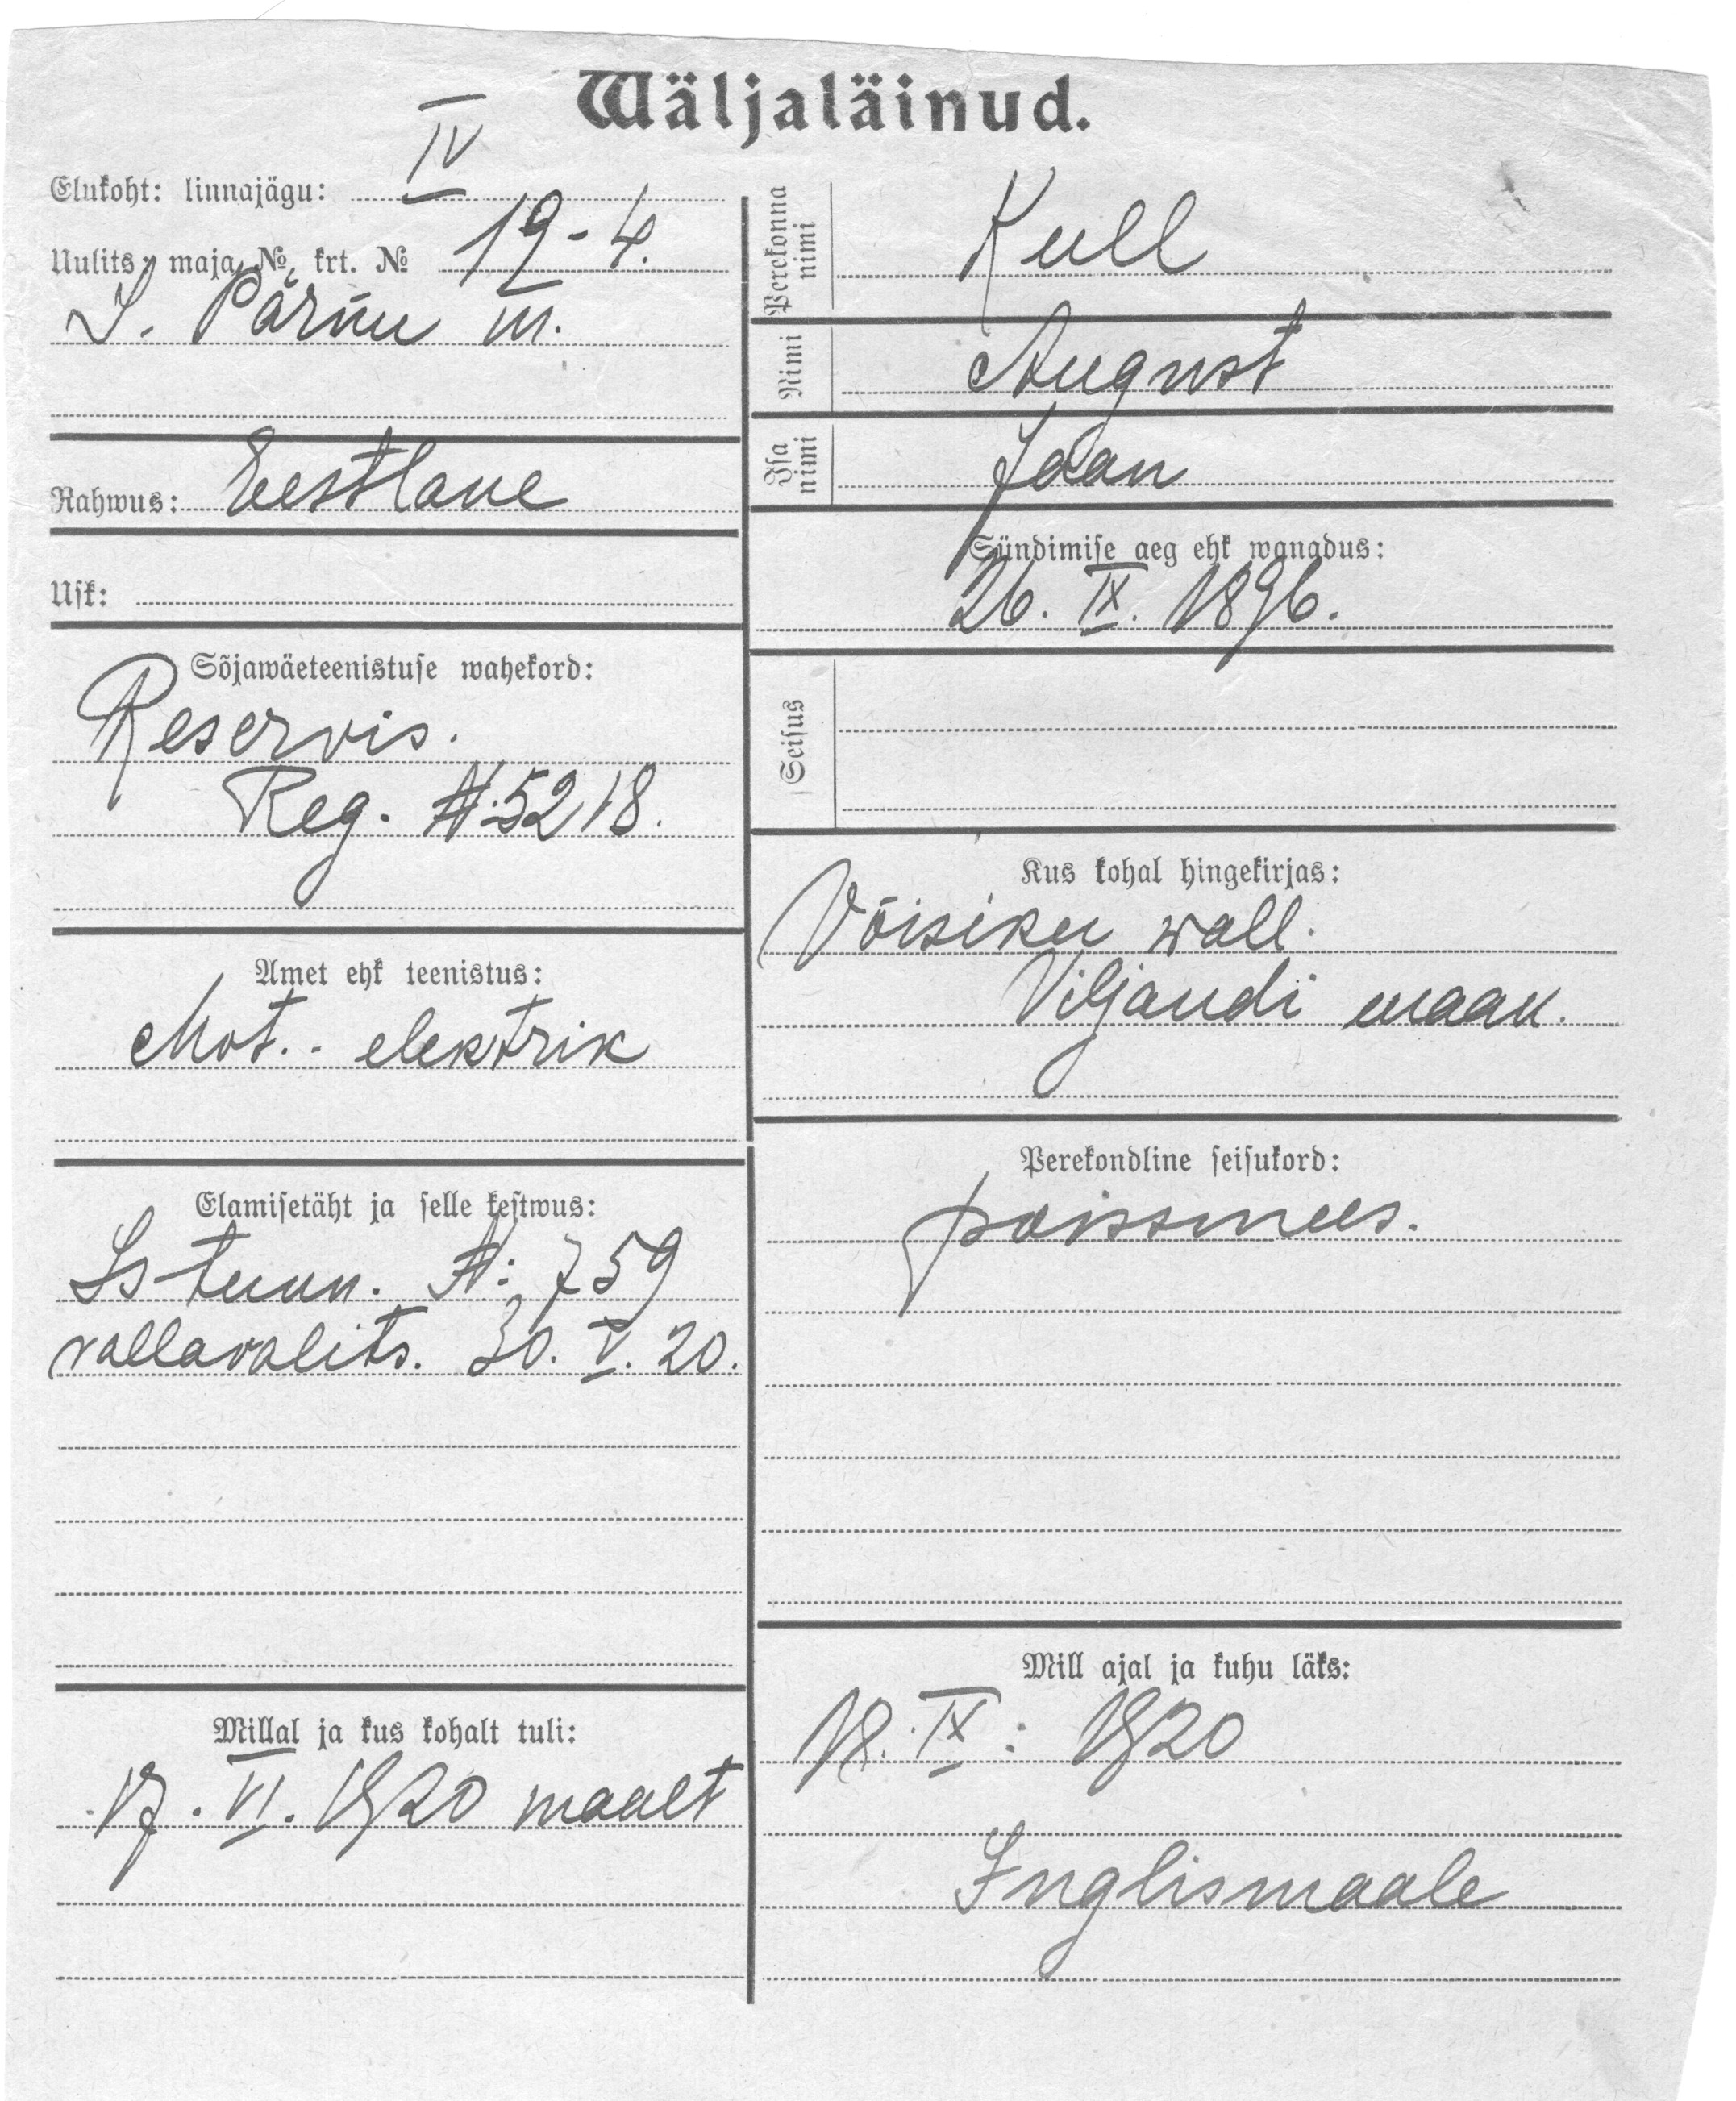 Wäljaläinud.
Elukoht: linnajägu: IV
Uulits, maja №, krt. № 19-4.
S. Pärnu m.
Rahwus: Eestlane
Usk:
Sõjawäeteenistuse wahekord:
Reservis.
Reg. №5218.
Amet ehk teenistus:
Mot.. elektrik
Elamisetäht ja selle kestwus:
Is tunn. №: 759
vallavalits. 30. V. 20.
Millal ja kus kohalt tuli:
17. VI. 1920 maalt
Perekonna nimi
Kull
Nimi
August
Isa nimi
Jaan
Sündimise aeg ehk wanadus:
26. IX. 1896.
Seisus
Kus kohal hingekirjas:
Võisiku wall.
Viljandi maak.
Perekondline seisukord:
poissmees.
Mill ajal ja kuhu läks:
18. IX: 1920
Inglismaale